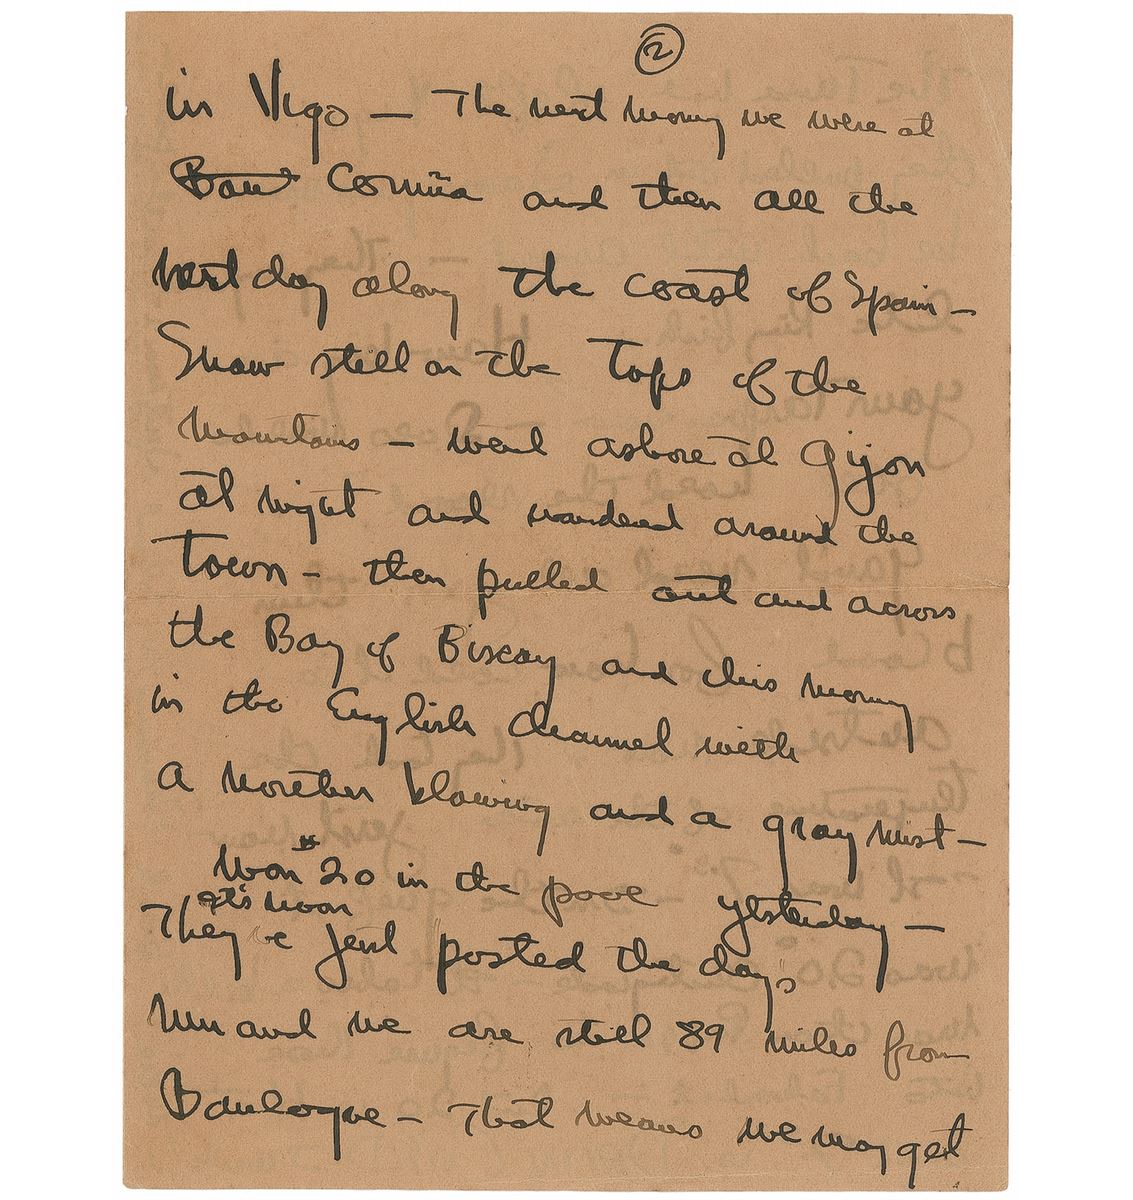 ②
in Vigo — The next morning we were at
Bou Coruña and then all the
next day along the coast of Spain —
Snow still on the Tops of the
mountains — went ashore at Gijon
at night and wandered around the
Town — then pulled out and across
the Bay of Biscay and this morning
in the English channel with
a norther blowing and a gray mist —
Won $20 in the pool yesterday —
It's noon
They've just posted the day's
run and we are still 89 miles from
Boulogne — That means we may get